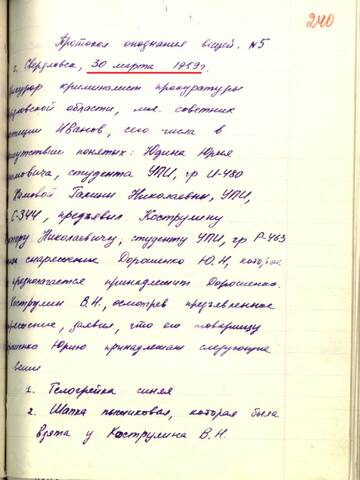 240
Протокол опознания вещей. №5
г. Свердловск, 30 марта 1959г.
Прокурор криминалист прокуратуры
Свердловской области, мл. советник
юстиции Иванов, сего числа в
присутствии понятых: Юдина Юрия
студента УПИ, гр И-480
Галины Николаевны, УПИ,
С-344, предъявил Кострулину
Николаевичу, студенту УПИ, гр Р-463
снаряжение Дорошенко Ю.Н, которое
предполагается принадлежит Дорошенко.
Кострулин В.Н., осмотрев предъявленное
снаряжение, заявил, что его товарищу
Дорошенко Юрию принадлежат следующие
вещи
1. Телогрейка синяя
2. Шапка пыжиковая, которая была
взята у Кострулина В.Н.